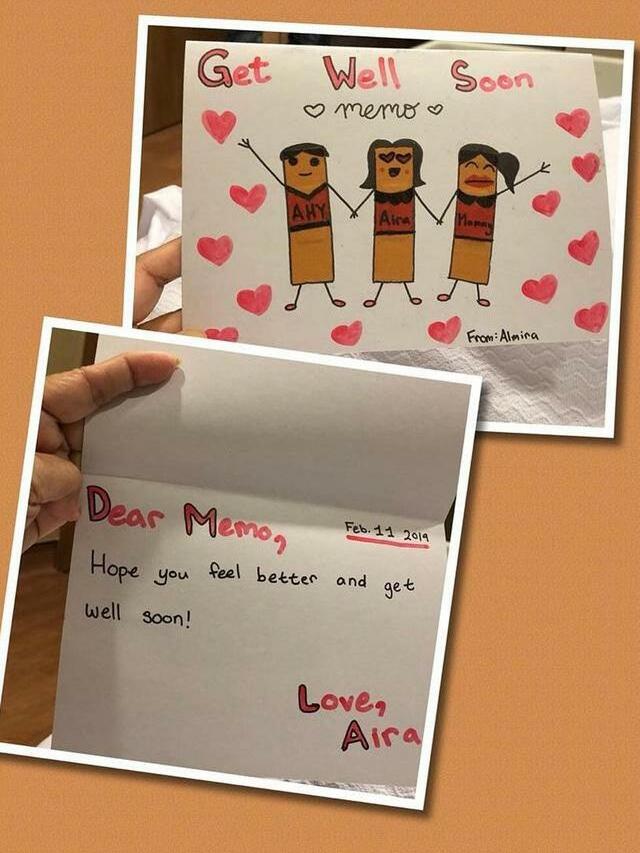 Get Well Soon
♡ memo ♡
AHY Aira Mommy
From: Almira
Dear Memo,
Feb. 11 2019
Hope you feel better and get
well soon!
Love,
Aira